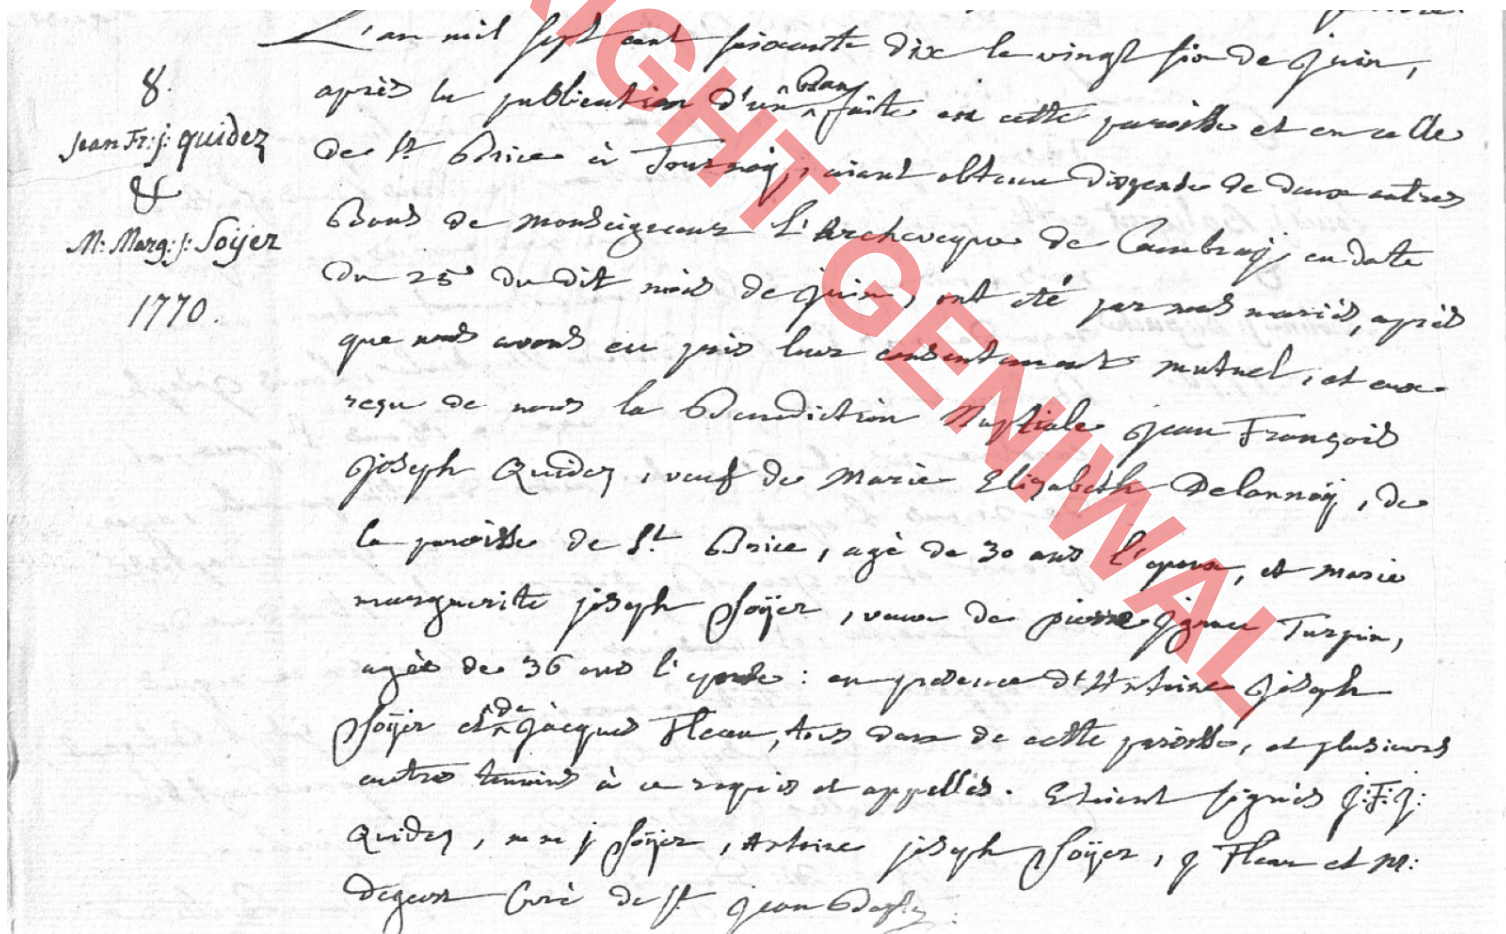 L'an mil sept cent soixante dix le vingt six de juin,
8.
après la publication d'un ban faite en cette paroisse et en celle
Jean Fr: j: quidez
de St Brice à Tournay, aiant obtenu dispense de deux autres
&
Bans de monseigneur l'Archeveque de Cambray, en date
M: Marg: j: Soÿez
du 25 du dit mois de juin, ont été par nous mariés, après
1770.
que nous avons eu pris leur consentement mutuel, et eux
reçu de nous la Benediction Nuptiale jean François
joseph Quidez, veuf de Marie Elizabeth Delannoÿ, de
la paroisse de St Brice, agé de 30 ans l'epoux, et marie
marguerite joseph Soÿez, veuve de pierre Ignace Turpin,
agée de 36 ans l'epouse: en presence d'Antoine joseph
Soÿez et de jacques Fleau, tous deux de cette paroisse, et plusieurs
autres temoins à ce requis et appellés. Etoient signés J: F: J:
Quidez, m m j Soÿez, Antoine joseph Soÿez, j Fleau et M:
Curé de St jean Baptiste
RIGHT GENIWAL